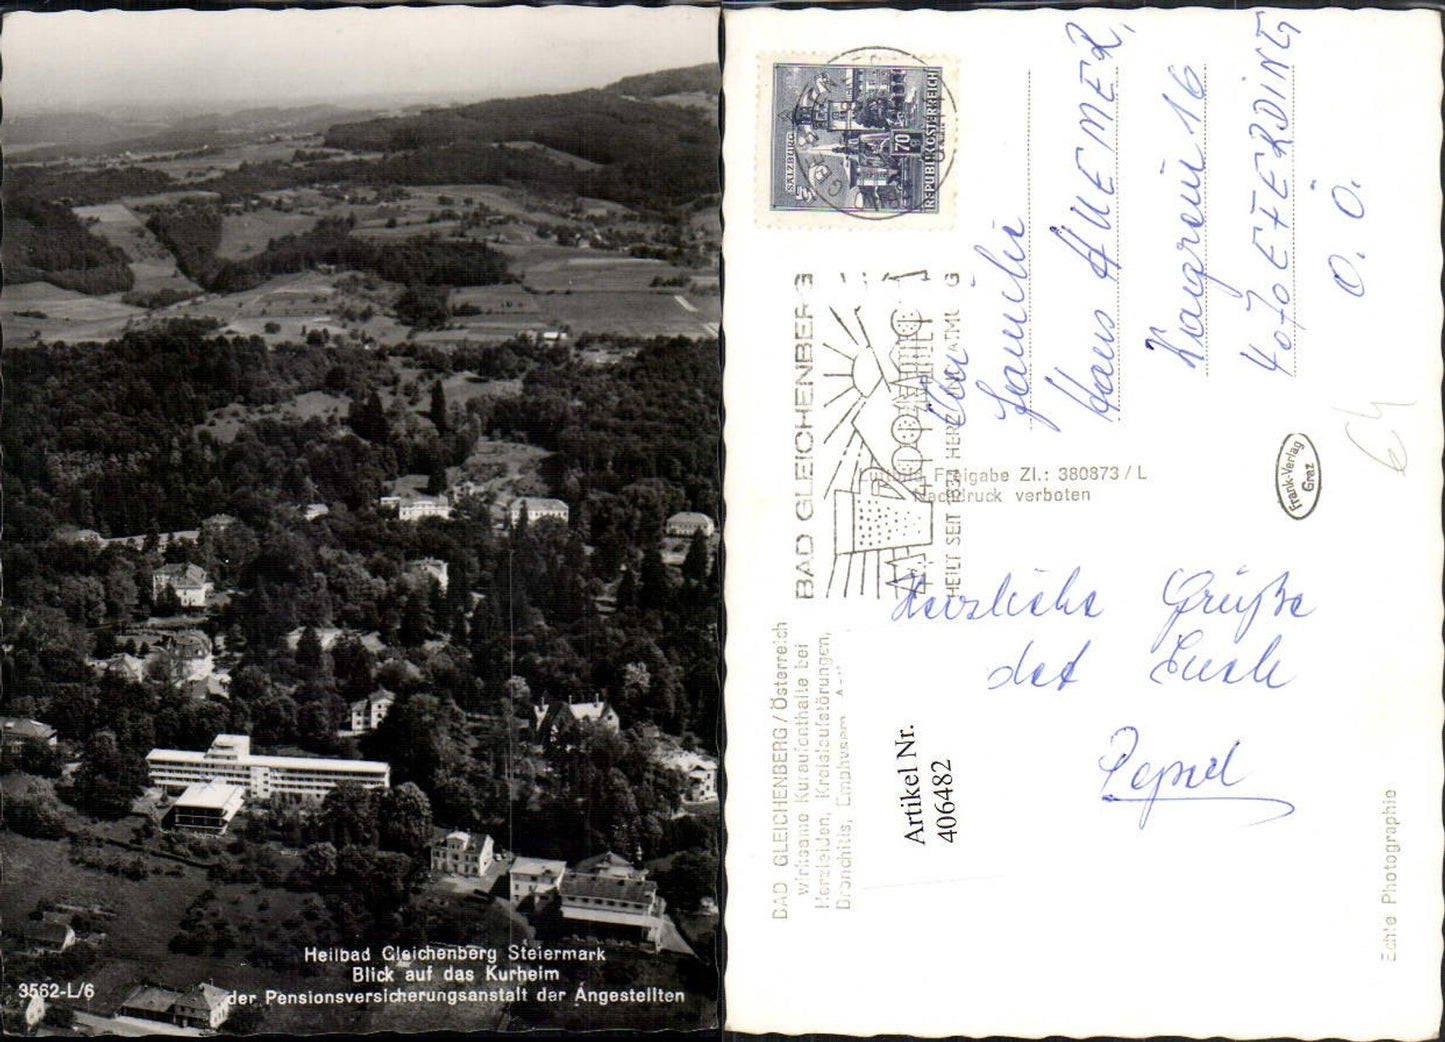 Heilbad Gleichenberg Steiermark
Blick auf das Kurheim
der Pensionsversicherungsanstalt der Angestellten
3562-L/6
SALZBURG
70
REPUBLIK ÖSTERREICH
BAD GLEICHENBERG
HEILT SEIT 1834 HERZ UND ATMUNG
Familie
Hans AUEMER,
16
4070 EFERDING
O.Ö.
Luftbild Freigabe Zl.: 380873/L
Nachdruck verboten
Frank-Verlag
Graz
Herzliche Grüße
BAD GLEICHENBERG / Österreich
wirksame Kuraufenthalte bei
Herzleiden, Kreislaufstörungen,
Bronchitis, Emphysem,
Artikel Nr.
406482
Echte Photographie